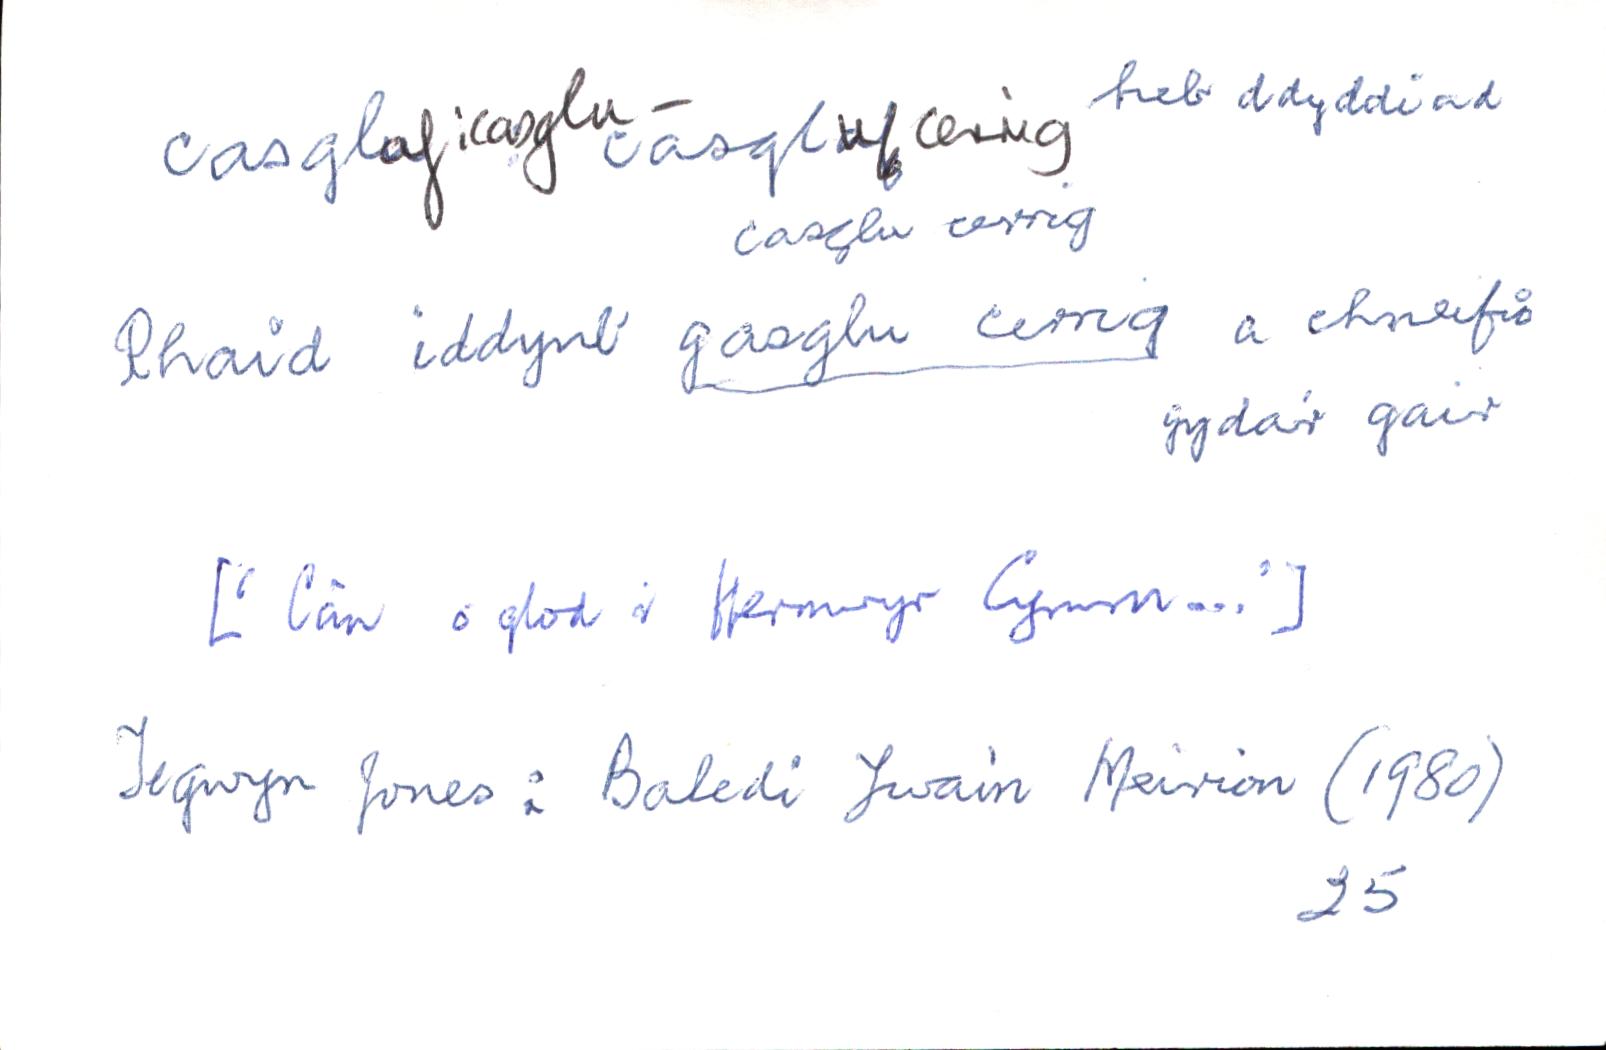 casglaf: casglu – casglaf cerrig heb ddyddiad
casglu cerrig
Rhaid iddynt gasglu cerrig a chneifio
gyda'r gair
['Cân o glod i Hermwyr Cymru...']
Tegwyn Jones: Baledi Ywain Meirion (1980)
25